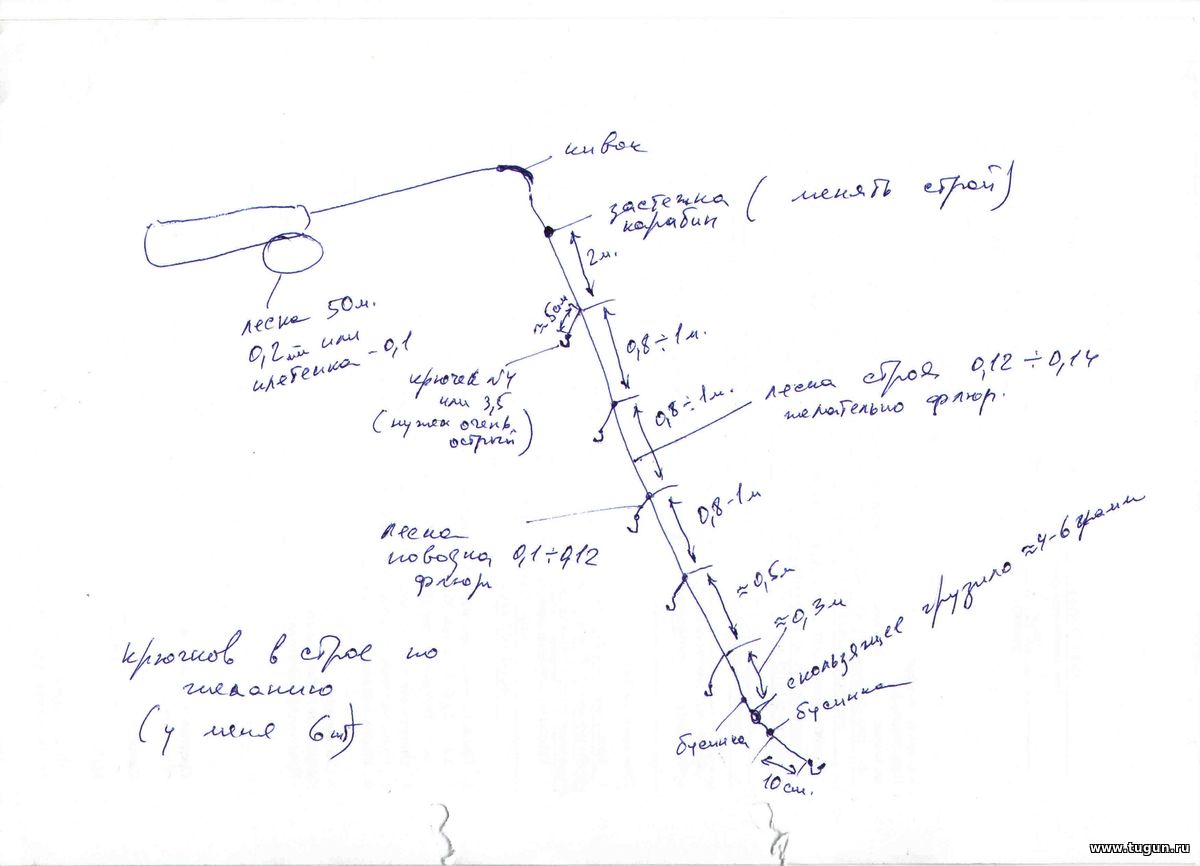 кивок
застежка
карабин
( менять строй)
2м.
леска 50м.
0,2мм или
плетенка - 0,1
≈5см
0,8÷1м.
крючек №4
или 3,5
(нужен очень
острый)
0,8÷1м.
леска строя 0,12÷0,14
желательно флюр.
0,8-1м
леска
поводка 0,1÷0,12
флюр
≈0,5м
≈0,3м
скользящее грузило ≈4-6 грамм
крючков в строе по
желанию
(у меня 6шт)
бусинка
бусинка
10см.
www.tugun.ru